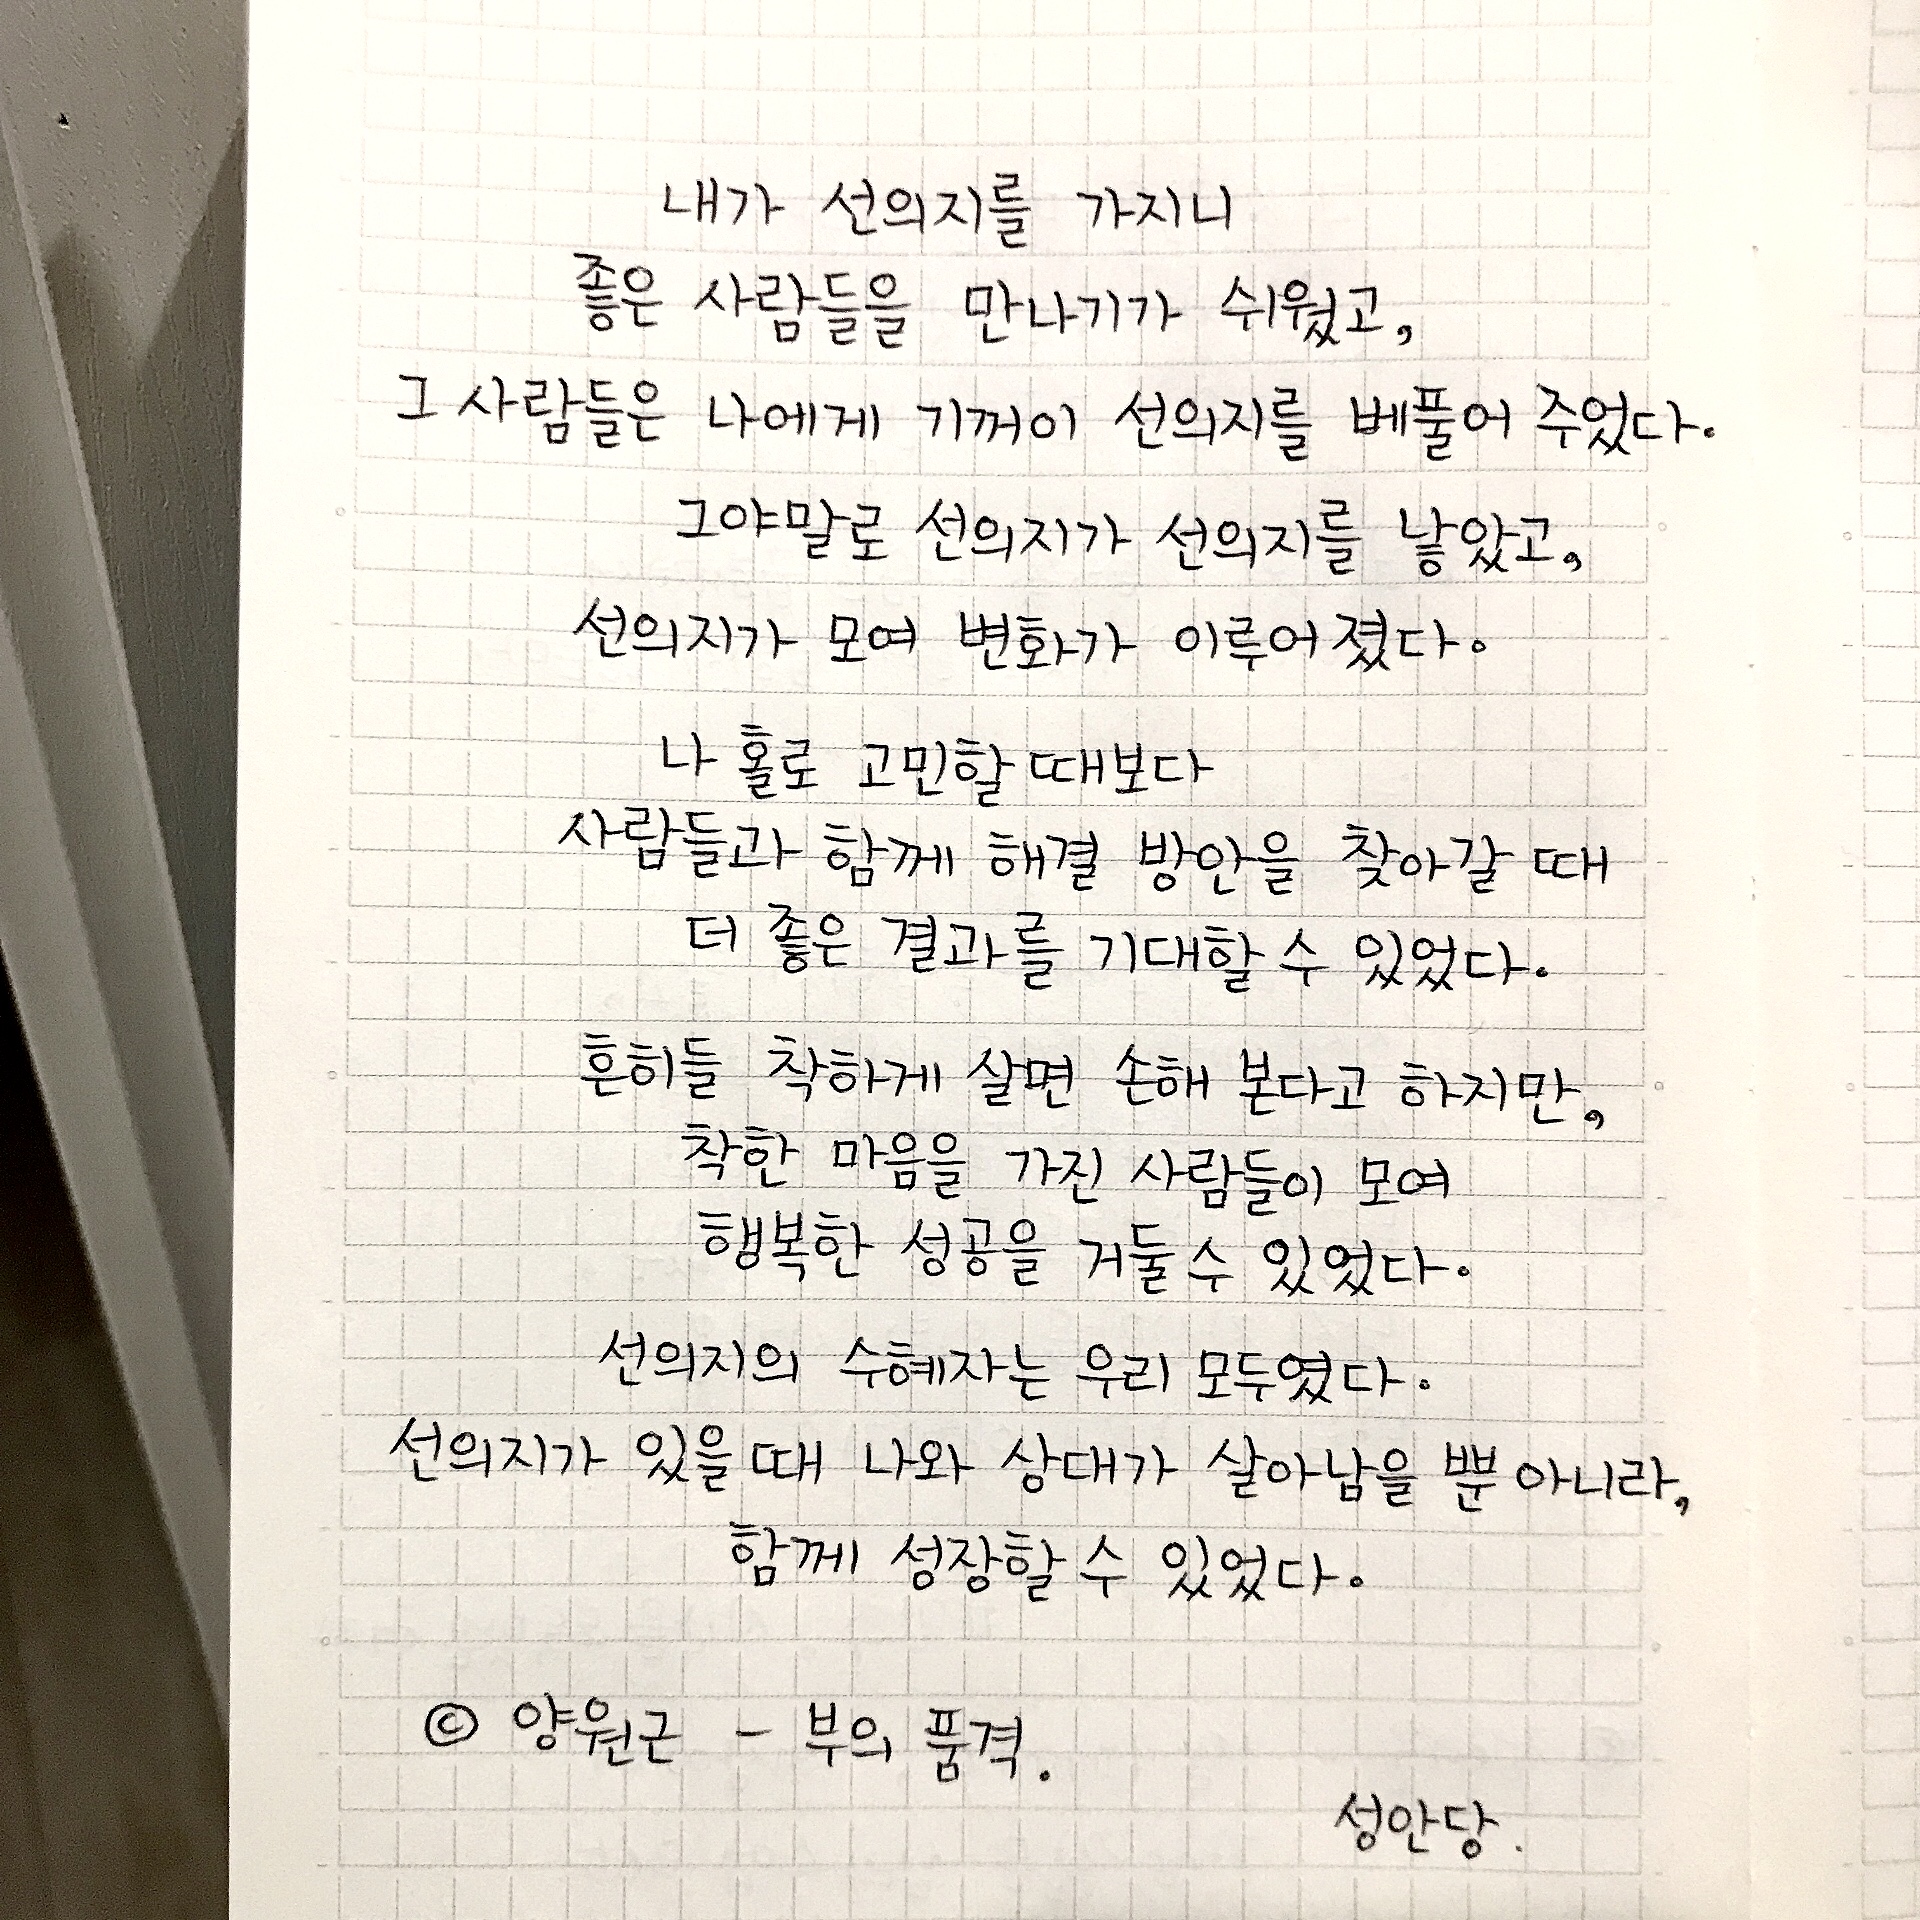 내가 선의지를 가지니
좋은 사람들을 만나기가 쉬웠고,
그 사람들은 나에게 기꺼이 선의지를 베풀어 주었다.
그야말로 선의지가 선의지를 낳았고,
선의지가 모여 변화가 이루어졌다.
나 홀로 고민할 때보다
사람들과 함께 해결 방안을 찾아갈 때
더 좋은 결과를 기대할 수 있었다.
흔히들 착하게 살면 손해 본다고 하지만,
착한 마음을 가진 사람들이 모여
행복한 성공을 거둘 수 있었다.
선의지의 수혜자는 우리 모두였다.
선의지가 있을 때 나와 상대가 살아남을 뿐 아니라,
함께 성장할 수 있었다.
© 양원근 - 부의 품격.
성안당.